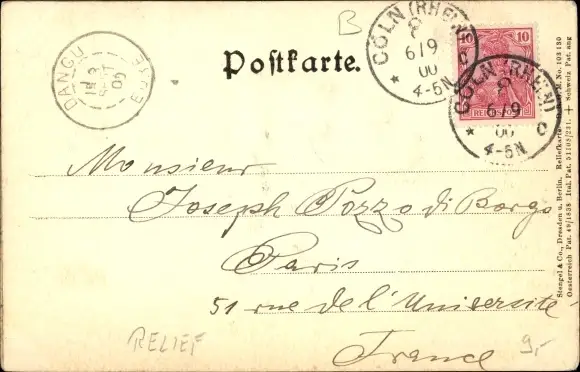 B
CÖLN (RHEIN)
6/9
00
4-5N
* C
10
CÖLN (RHEIN)
6/9
00
4-5N
* C
DANGU
EURE
00
Postkarte.
Monsieur
Joseph Pozzo di Borgo
Paris
51 rue de l'Université
France
RELIEF
9,-
Stengel & Co., Dresden u. Berlin. Reliefkarte
Oesterreich Pat. 49/1838 Ital. Pat. 51105/231. + Schweiz Pat. ang